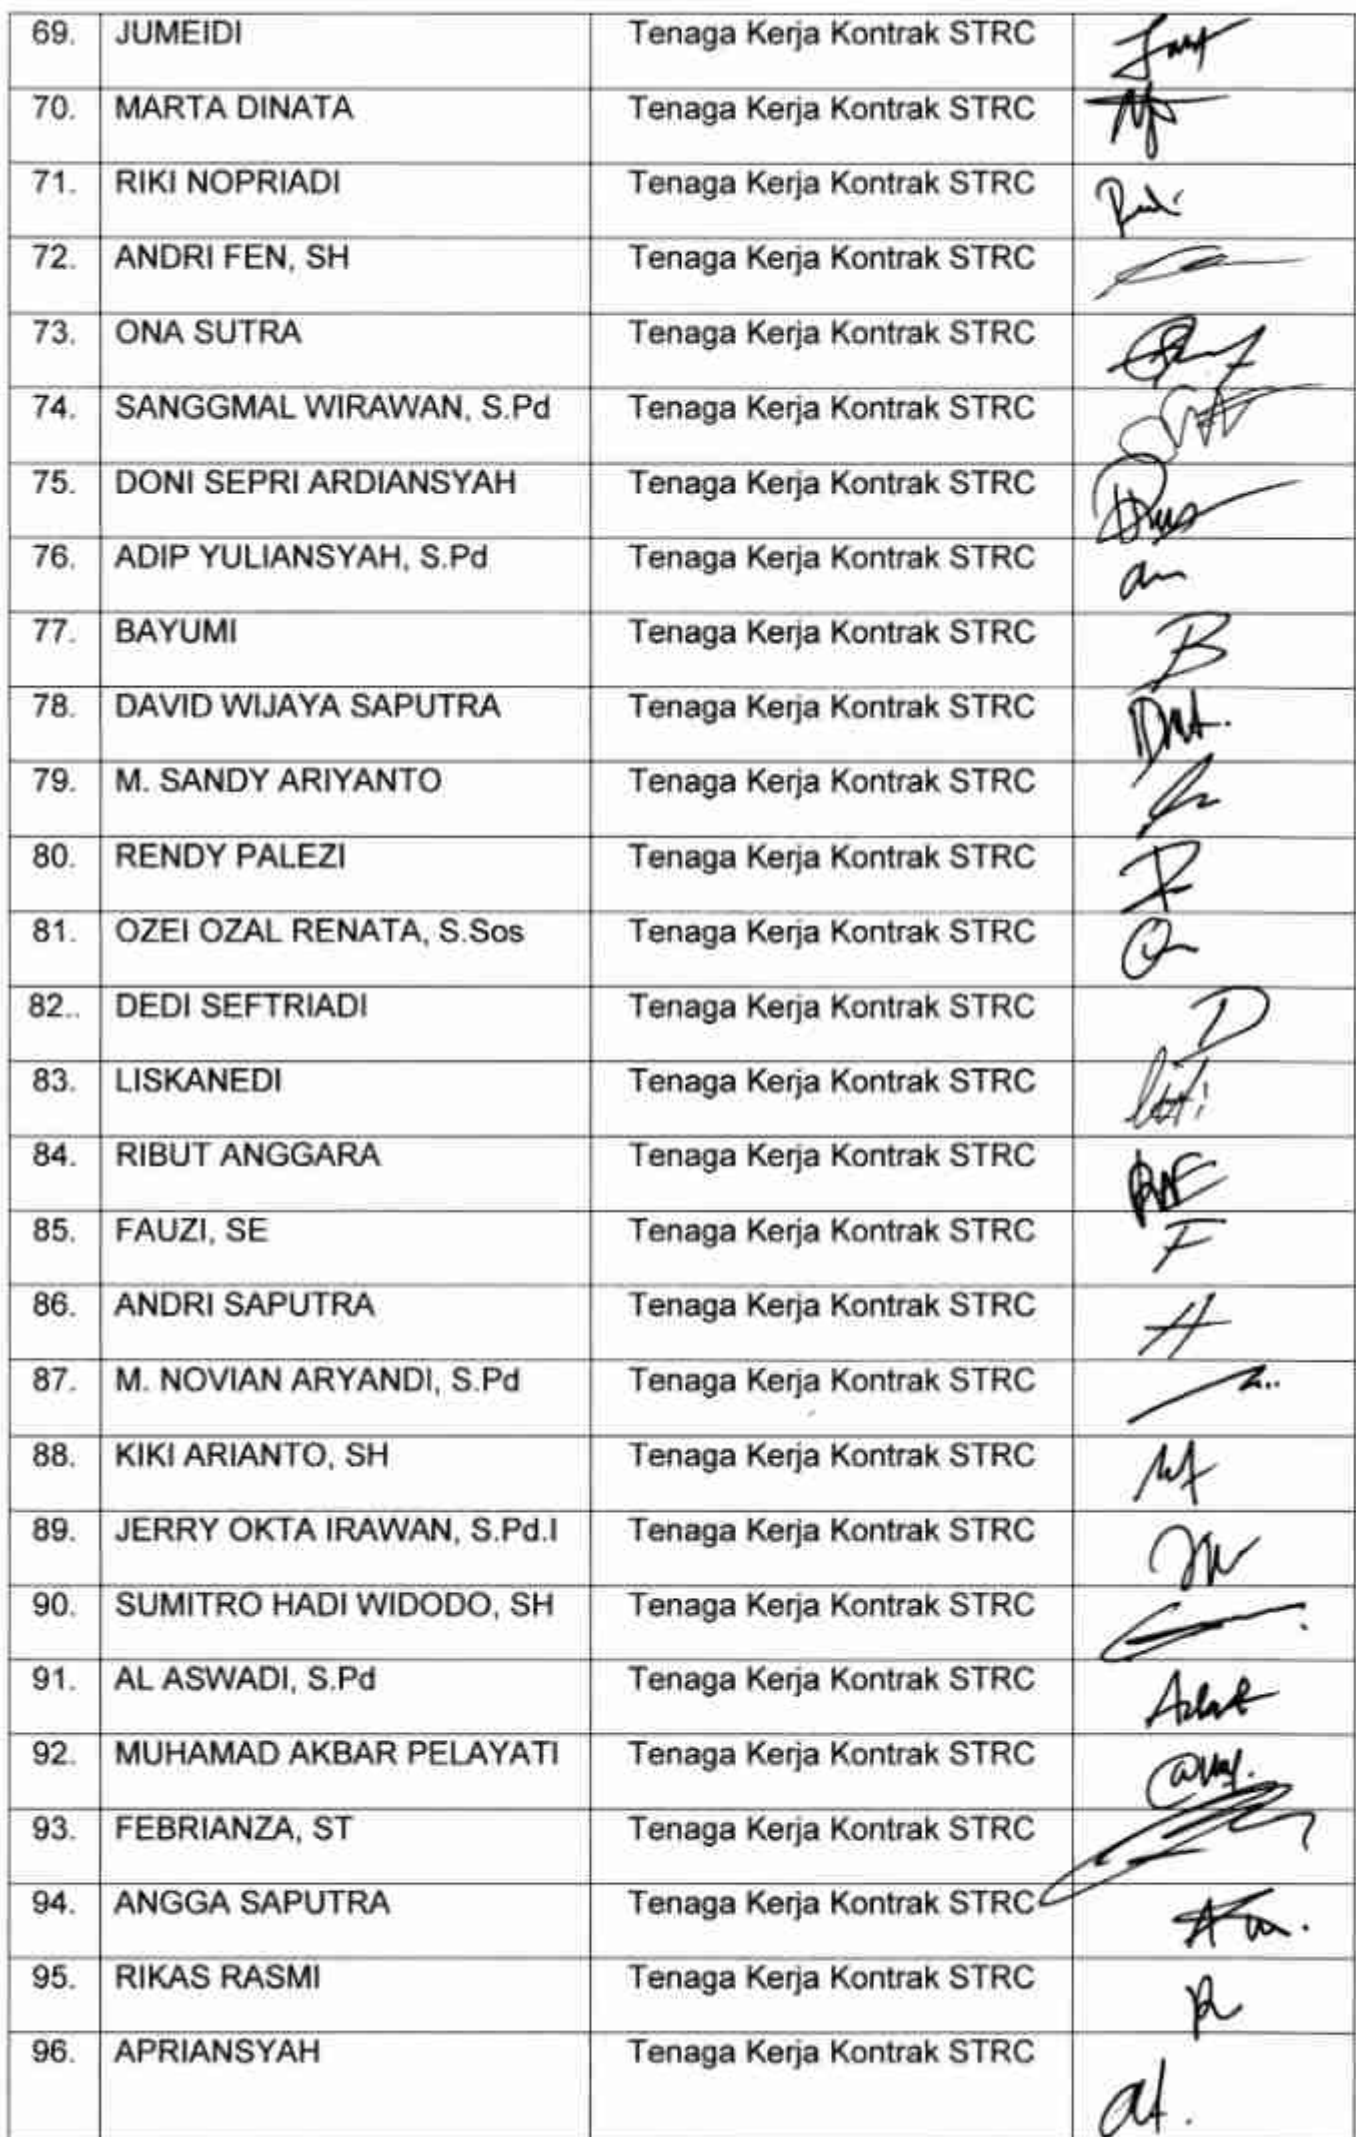 69. JUMEIDI Tenaga Kerja Kontrak STRC
70. MARTA DINATA Tenaga Kerja Kontrak STRC
71. RIKI NOPRIADI Tenaga Kerja Kontrak STRC
72. ANDRI FEN, SH Tenaga Kerja Kontrak STRC
73. ONA SUTRA Tenaga Kerja Kontrak STRC
74. SANGGMAL WIRAWAN, S.Pd Tenaga Kerja Kontrak STRC
75. DONI SEPRI ARDIANSYAH Tenaga Kerja Kontrak STRC
76. ADIP YULIANSYAH, S.Pd Tenaga Kerja Kontrak STRC
77. BAYUMI Tenaga Kerja Kontrak STRC
78. DAVID WIJAYA SAPUTRA Tenaga Kerja Kontrak STRC
79. M. SANDY ARIYANTO Tenaga Kerja Kontrak STRC
80. RENDY PALEZI Tenaga Kerja Kontrak STRC
81. OZEI OZAL RENATA, S.Sos Tenaga Kerja Kontrak STRC
82.. DEDI SEFTRIADI Tenaga Kerja Kontrak STRC
83. LISKANEDI Tenaga Kerja Kontrak STRC
84. RIBUT ANGGARA Tenaga Kerja Kontrak STRC
85. FAUZI, SE Tenaga Kerja Kontrak STRC
86. ANDRI SAPUTRA Tenaga Kerja Kontrak STRC
87. M. NOVIAN ARYANDI, S.Pd Tenaga Kerja Kontrak STRC
88. KIKI ARIANTO, SH Tenaga Kerja Kontrak STRC
89. JERRY OKTA IRAWAN, S.Pd.I Tenaga Kerja Kontrak STRC
90. SUMITRO HADI WIDODO, SH Tenaga Kerja Kontrak STRC
91. AL ASWADI, S.Pd Tenaga Kerja Kontrak STRC
92. MUHAMAD AKBAR PELAYATI Tenaga Kerja Kontrak STRC
93. FEBRIANZA, ST Tenaga Kerja Kontrak STRC
94. ANGGA SAPUTRA Tenaga Kerja Kontrak STRC
95. RIKAS RASMI Tenaga Kerja Kontrak STRC
96. APRIANSYAH Tenaga Kerja Kontrak STRC